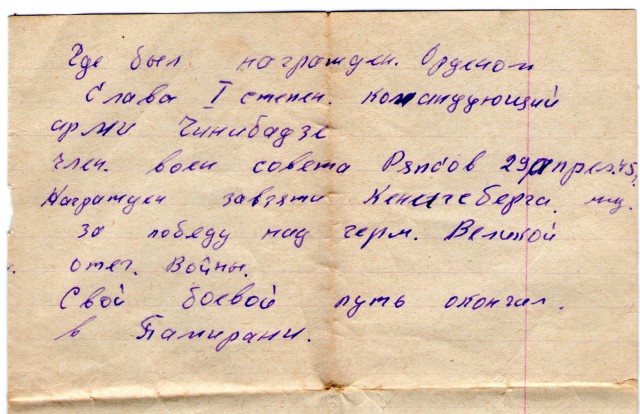 Где был награжден. Орденом
Слава I степен. командующий
арми Чинибадзе
член. воен совета Рябов 29 апрел. 45,
Награжден завзяти Кенигсберга. мед.
за победу над герм. Великой
отеч. Войны.
Свой боевой путь окончил.
в Памирани.